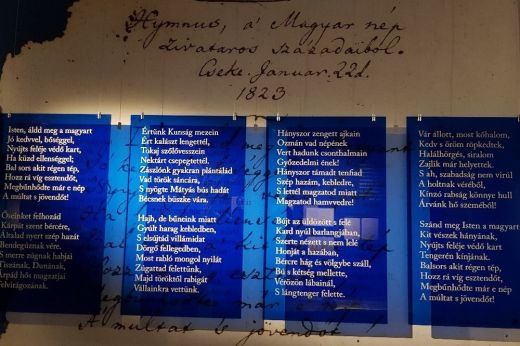 Hymnus, a' Magyar nép
zivataros századaiból.
Cseke. Januar. 22d.
1823
Isten, áldd meg a magyart
Jó kedvvel, bőséggel,
Nyújts feléje védő kart,
Ha küzd ellenséggel;
Bal sors akit régen tép,
Hozz rá víg esztendőt,
Megbűnhődte már e nép
A múltat s jövendőt!
Őseinket felhozád
Kárpát szent bércére,
Általad nyert szép hazát
Bendegúznak vére.
S merre zúgnak habjai
Tiszának, Dunának,
Árpád hős magzatjai
Felvirágozának.
Értünk Kunság mezein
Ért kalászt lengettél,
Tokaj szőlővesszein
Nektárt csepegtettél.
Zászlónk gyakran plántálád
Vad török sáncára,
S nyögte Mátyás bús hadát
Bécsnek büszke vára.
Hajh, de bűneink miatt
Gyúlt harag kebledben,
S elsújtád villámidat
Dörgő fellegedben,
Most rabló mongol nyilát
Zúgattad felettünk,
Majd töröktől rabigát
Vállainkra vettünk.
Hányszor zengett ajkain
Ozmán vad népének
Vert hadunk csonthalmain
Győzedelmi ének!
Hányszor támadt tenfiad
Szép hazám, kebledre,
S lettél magzatod miatt
Magzatod hamvvedre!
Bújt az üldözött s felé
Kard nyúl barlangjában,
Szerte nézett s nem lelé
Honját a hazában,
Bércre hág és völgybe száll,
Bú s kétség mellette,
Vérözön lábainál,
S lángtenger felette.
Vár állott, most kőhalom,
Kedv s öröm röpkedtek,
Halálhörgés, siralom
Zajlik már helyettek.
S ah, szabadság nem virúl
A holtnak véréből,
Kínzó rabság könnye hull
Árvánk hő szeméből!
Szánd meg Isten a magyart
Kit vészek hányának,
Nyújts feléje védő kart
Tengerén kínjának.
Balsors akit régen tép,
Hozz rá víg esztendőt,
Megbűnhődte már e nép
A múltat s jövendőt!
A múltat s jövendőt